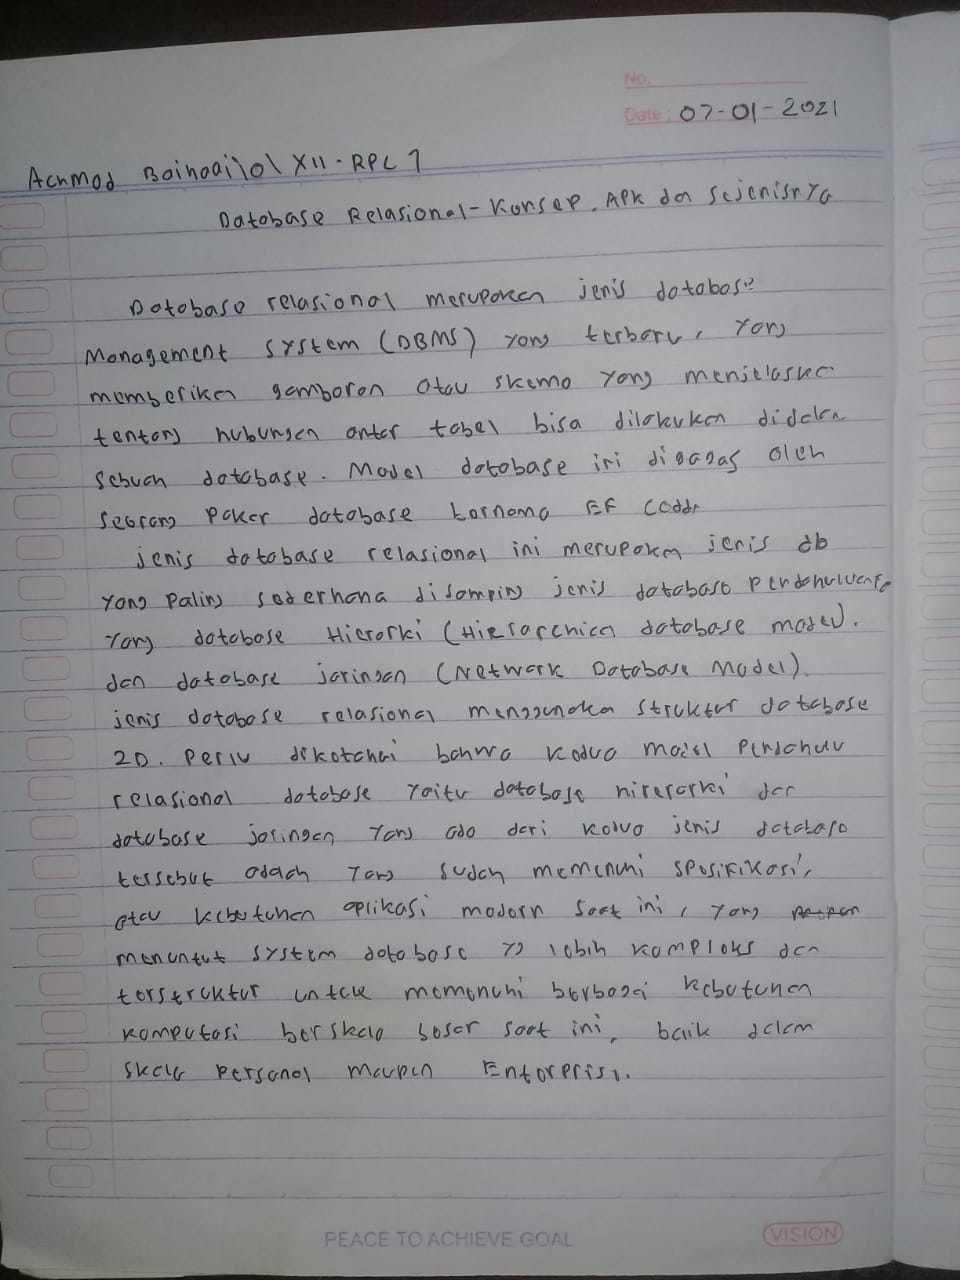 No.
Date : 07-01-2021
XII - RPL 1
Database Relasional - Konsep, APK dan sejenisnya
Database relasional merupakan jenis database
Management system (DBMS) yang terbaru, yang
memberikan gambaran atau skema yang menjelaskan
tentang hubungan antar tabel bisa dilakukan didalam
sebuah database. Model database ini digagas oleh
seorang pakar database bernama EF Codd
jenis database relasional ini merupakan jenis db
yang paling sederhana disamping jenis database pendahulunya
yang database Hierarki (Hierarchica database model).
dan database jaringan (Network Database Model).
jenis database relasional menggunakan struktur database
2D. Perlu diketahui bahwa kedua model pendahulu
relasional database yaitu database hirerarki dan
database jaringan yang ada dari kedua jenis database
tersebut adalah yang sudah memenuhi spesifikasi,
atau kebutuhan aplikasi modern saat ini, yang
menuntut system database yg lebih kompleks dan
terstruktur untuk memenuhi berbagai kebutuhan
komputasi berskala besar saat ini, baik dalam
skala personal maupun Enterprise.
PEACE TO ACHIEVE GOAL
VISION